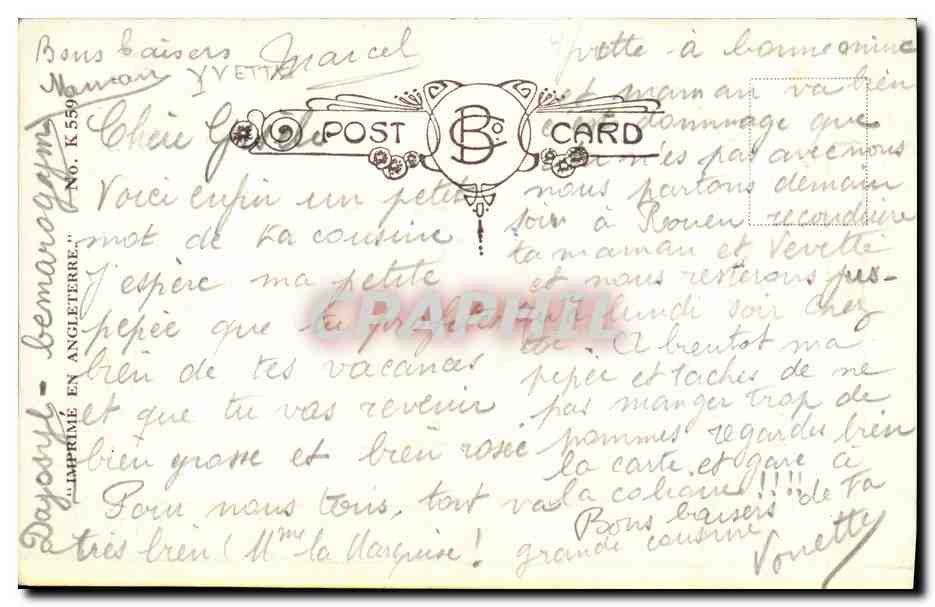 Bons baisers Marcel
Maman YVETTE
POST CARD
BCo.
No. K 559
"IMPRIMÉ EN ANGLETERRE."
Chère
Voici enfin un petit
mot de ta cousine
J'espère ma petite
pepée que tu profites
bien de tes vacances
et que tu vas revenir
bien grosse et bien rosée
Pour nous tous, tout va
très bien ( Mme la Marquise !
à bonne mine
et maman va bien
c'est dommage que
tu n'es pas avec nous
nous partons demain
soir à Rouen reconduire
ta maman et Vevette
et nous resterons jus-
lundi soir chez
toi. A bientot ma
pepée et taches de ne
pas manger trop de
pommes regardes bien
la carte et gare a
la !!!!
Bons baisers de ta
grande cousine
CRAPHIL